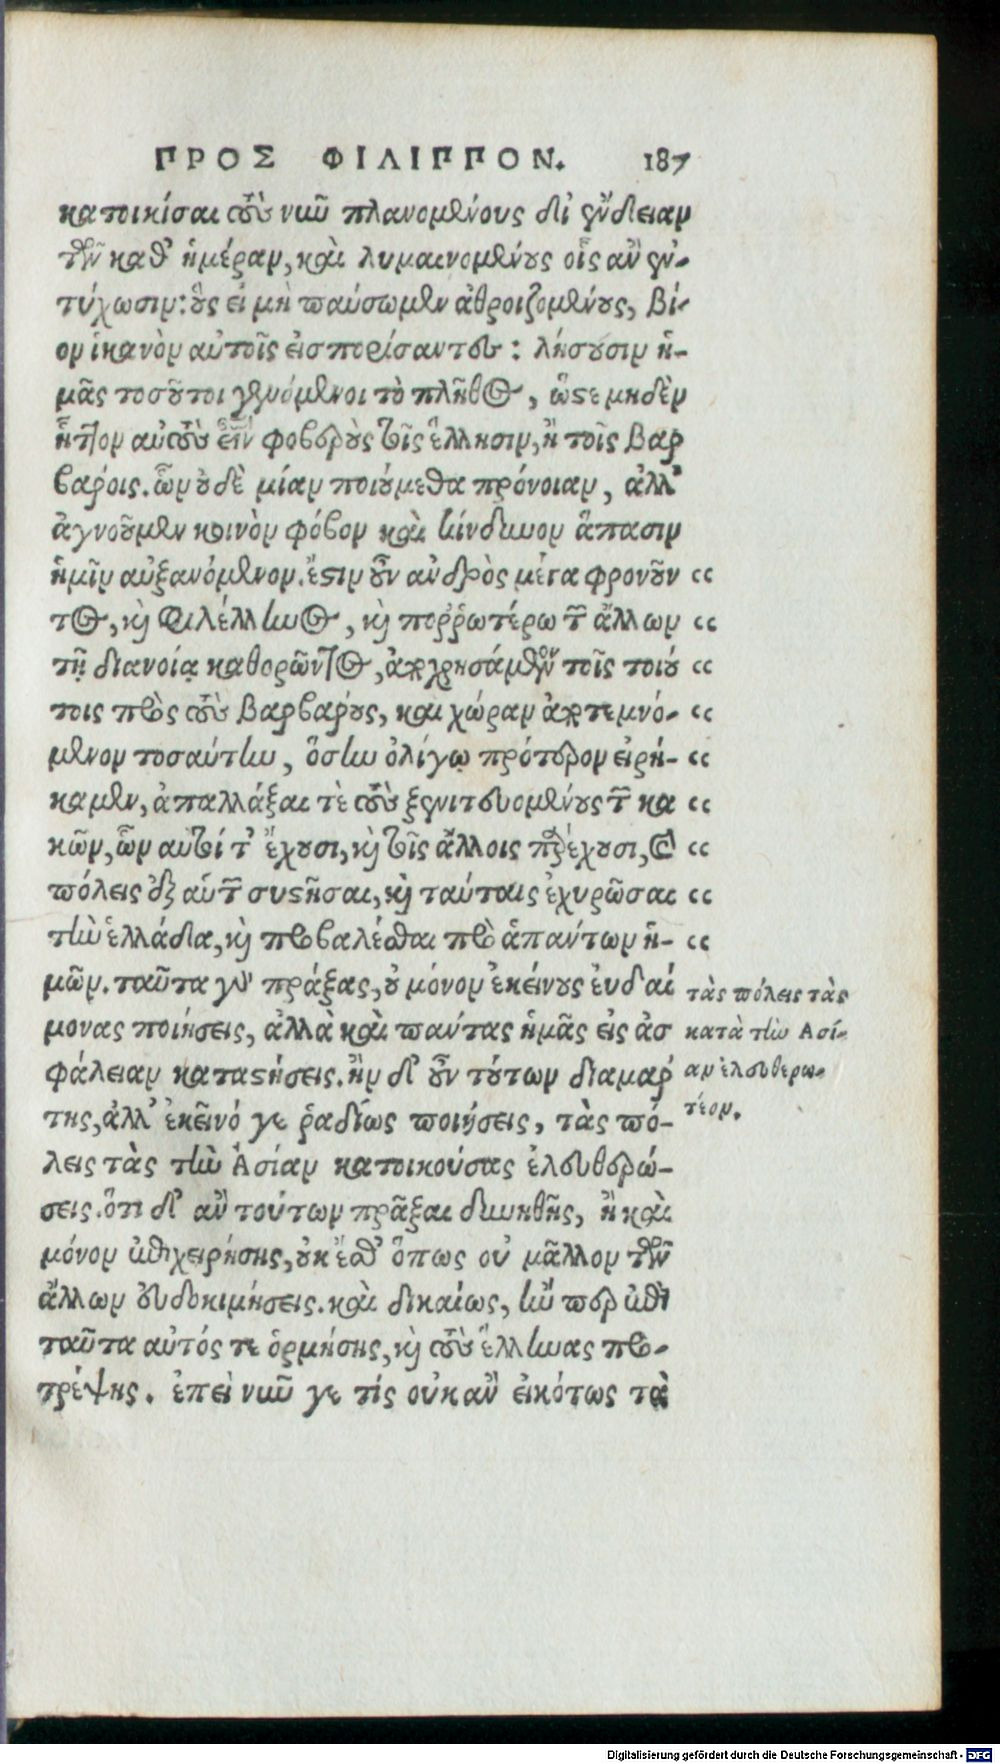 ΠΡΟΣ ΦΙΛΙΠΠΟΝ. 187
κατοικίσαι τοὺς νῦν πλανομένους δι' ἔνδειαν
τῶν καθ' ἡμέραν, καὶ λυμαινομένους οἷς ἂν ἐν-
τύχωσιν: οὓς εἰ μὴ παύσωμεν ἀθροιζομένους, βί-
ον ἱκανὸν αὐτοῖς εἰσπορίσαντες: λήσουσιν ἡ-
μᾶς τοσοῦτοι γενόμενοι τὸ πλῆθος, ὥστε μηδὲν
ἧττον αὐτοὺς εἶναι φοβεροὺς τοῖς ἕλλησιν, ἢ τοῖς βαρ
βάροις. ὧν οὐδὲ μίαν ποιούμεθα πρόνοιαν, ἀλλ'
ἀγνοοῦμεν κοινὸν φόβον καὶ κίνδυνον ἅπασιν
ἡμῖν αὐξανόμενον. ἔστιν οὖν ἀνδρὸς μέγα φρονοῦν
τος, καὶ φιλέλληνος, καὶ πορῤῥωτέρω τῶν ἄλλων
τῇ διανοίᾳ καθορῶντος, ἀποχρησάμενον τοῖς τοιού
τοις πρὸς τοὺς βαρβάρους, καὶ χώραν ἀποτεμνό-
μενον τοσαύτην, ὅσην ὀλίγῳ πρότερον εἰρή-
καμεν, ἀπαλλάξαι τὲ τοὺς ξενιτευομένους τῶν κα
κῶν, ὧν αὐτοί τ' ἔχουσι, καὶ τοῖς ἄλλοις παρέχουσι, καὶ
πόλεις ἐξ αὐτῶν συστῆσαι, καὶ ταύταις ἐχυρῶσαι
τὴν ἑλλάδα, καὶ προβαλέσθαι πρὸ ἁπάντων ἡ-
μῶν. ταῦτα γὰρ πράξας, οὐ μόνον ἐκείνους εὐδαί
μονας ποιήσεις, ἀλλὰ καὶ πάντας ἡμᾶς εἰς ἀσ
φάλειαν καταστήσεις. ἢν δ' οὖν τούτων διαμάρ
της, ἀλλ' ἐκεῖνό γε ῥαδίως ποιήσεις, τὰς πό-
λεις τὰς τὴν Ἀσίαν κατοικούσας ἐλευθερώ-
σεις. ὅτι δ' ἂν τούτων πρᾶξαι δυνηθῇς, ἢ καὶ
μόνον ἐπιχειρήσης, οὐκ ἔσθ' ὅπως οὐ μᾶλλον τῶν
ἄλλων εὐδοκιμήσεις. καὶ δικαίως, ἤν περ ἐπὶ
ταῦτα αὐτός τε ὁρμήσης, καὶ τοὺς ἕλληνας προ-
τρέψης. ἐπεὶ νῦν γε τίς οὐκ ἂν εἰκότως τὰ
τὰς πόλεις τὰς
κατὰ τὴν Ἀσί-
αν ἐλευθερω-
τέον.
Digitalisierung gefördert durch die Deutsche Forschungsgemeinschaft - DFG